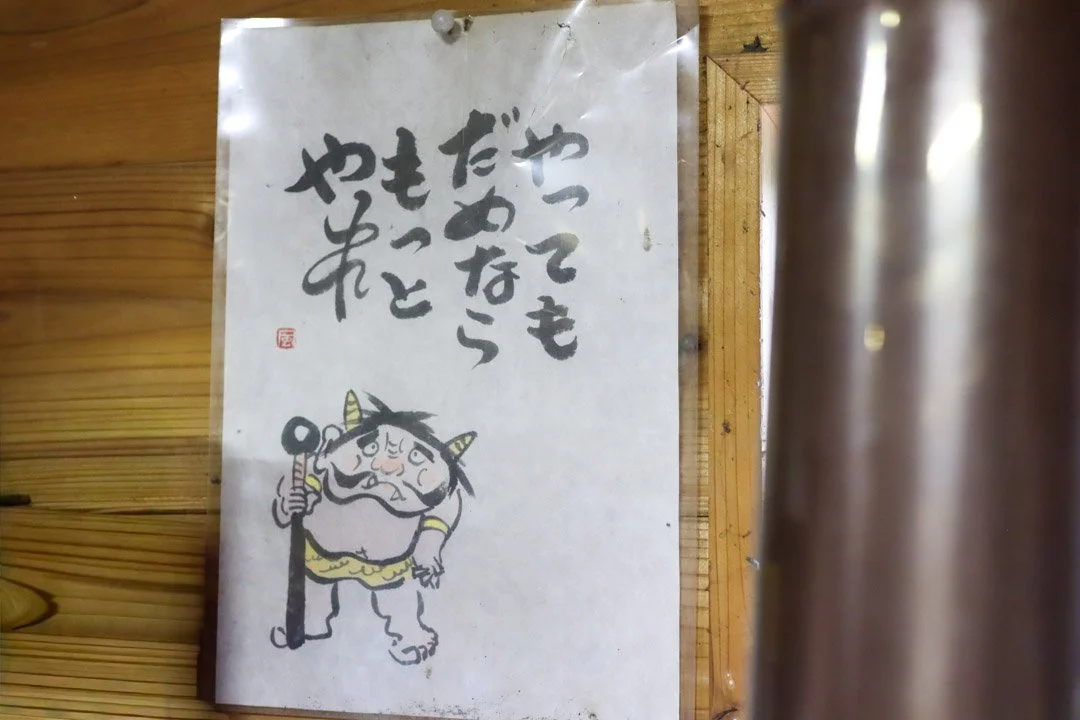 やっても
だめなら
もっと
やれ